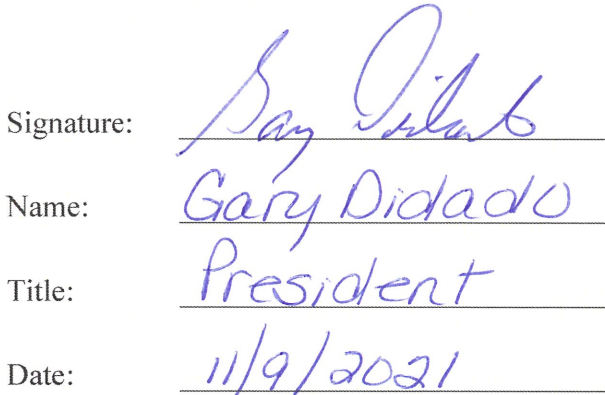 Signature: Gary Didado
Name: Gary Didado
Title: President
Date: 11/9/2021